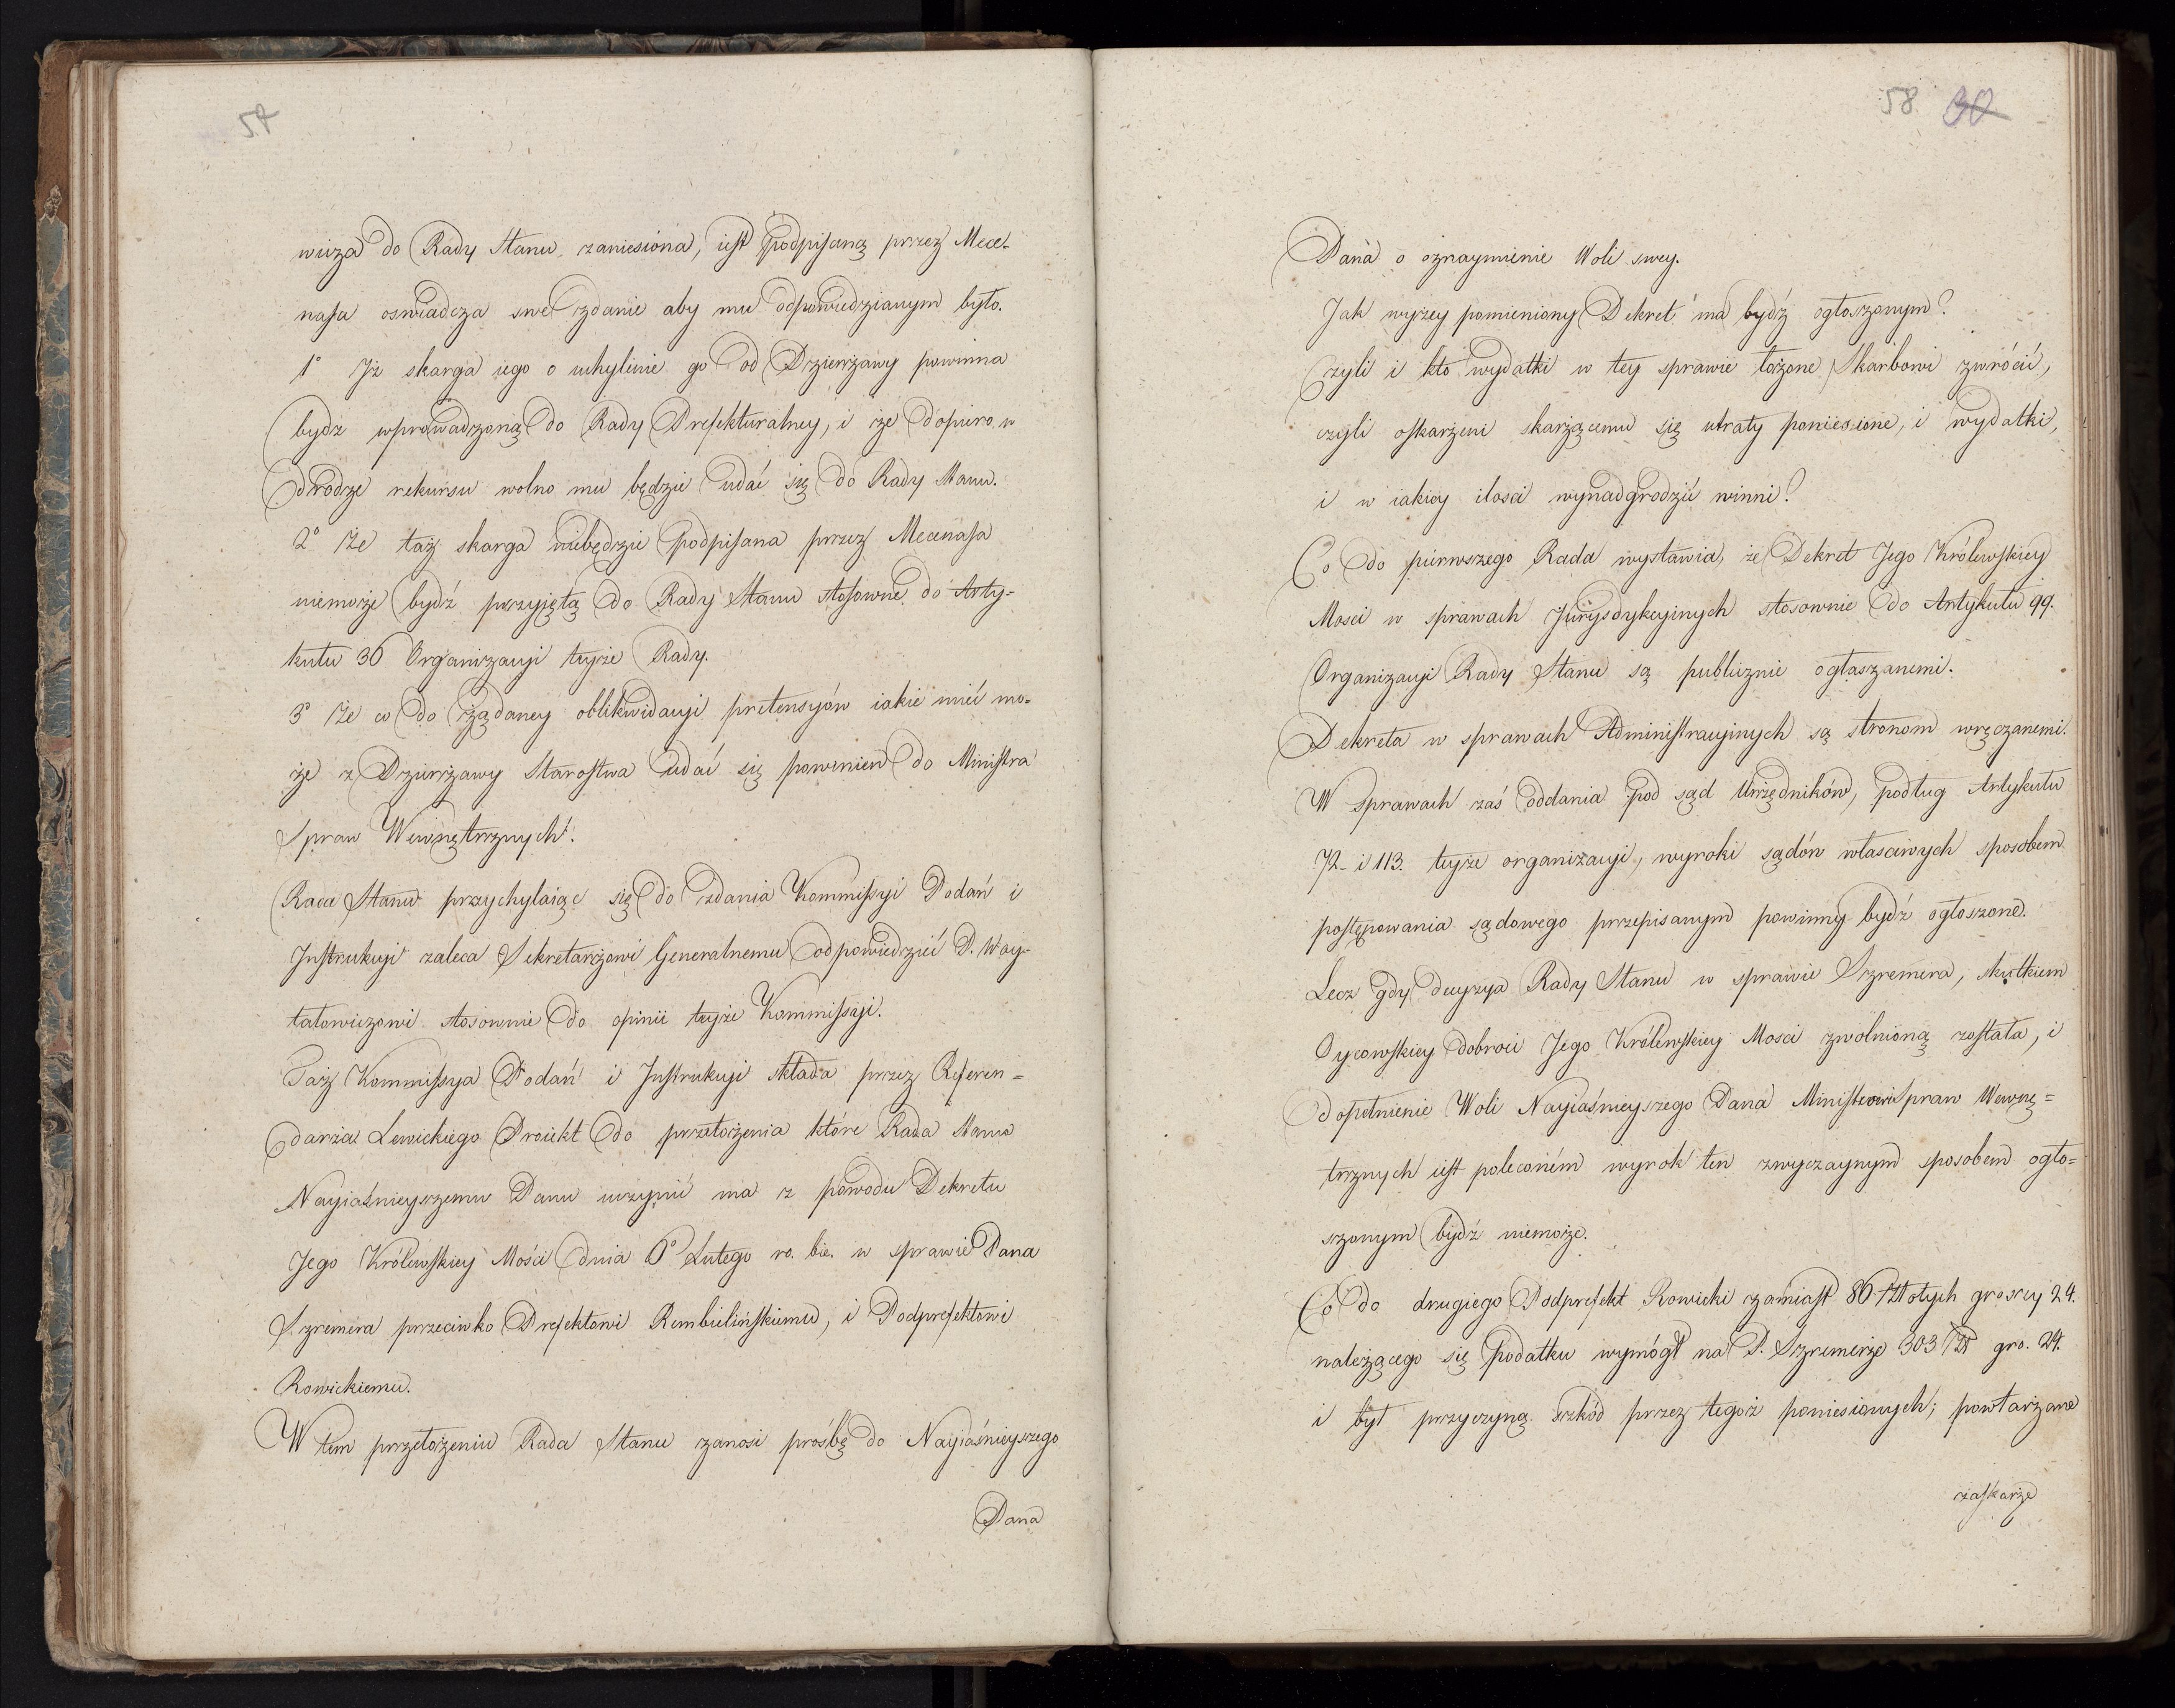 57
wicza do Rady Stanu zaniesiona, iest podpisaną przez Mece-
nasa oswiadcza swe zdanie aby mu odpowiedzianym było.
1° Iż skarga iego o uchylenie go od Dzierżawy powinna
bydz wprowadzoną do Rady Prefekturalney, i że dopiero w
drodze rekursu wolno mu będzie udać się do Rady Stanu.
2° Że taż skarga niebędzie podpisana przez Mecenasa
niemoże bydź przyiętą do Rady Stanu stosownie do Arty-
kułu 36 Organizacyi teyże Rady.
3° Że co do żądaney oblikwidacyi pretensyów iakie mieć mo-
że z Dzierżawy Starostwa udać się powinien do Ministra
Spraw Wewnętrznych.
Rada Stanu przychylaiąc się do zdania Kommissyi Podań i
Instrukcyi zaleca Sekretarzowi Generalnemu odpowiedzieć P. Woy-
tatowiczowi stosownie do opinii teyże Kommissyi.
Taż Kommissya Podań i Instrukcyi składa przez Referen=
darza Lewickiego Proiekt do przełożenia które Rada Stanu
Nayiaśnieyszemu Panu uczynić ma z powodu Dekretu
Jego Królewskiey Mości dnia 6° Lutego ro. bie. w sprawie Pana
Szremera przeciwko Prefektowi Rembielińskiemu, i Podprefektowi
Rowickiemu.
W tem przełożeniu Rada Stanu zanosi prośbę do Nayiaśnieyszego
Pana
58 30
Pana o oznaymienie Woli swey.
Jak wyzey pomieniony Dekret ma bydź ogłoszonym?
Czyli i kto wydatki w tey sprawie łożone Skarbowi zwrócić,
czyli oskarżeni skarżącemu się utraty poniesione, i wydatki,
i w iakiey ilosci wynadgrodzić winni?
Co do pierwszego Rada wystawia, że Dekret Jego Królewskiey
Mosci w sprawach Jurysdykcyinych stosownie do Artykułu 99.
Organizacyi Rady Stanu są publicznie ogłaszanemi.
Dekreta w sprawach Administracyinych są stronom wręczanemi.
W sprawach zaś oddania pod sąd Urzędników, podług Artykułu
72. i 113. teyże organizacyi, wyroki sądów właściwych sposobem
postępowania sądowego przepisanym powinny bydź ogłoszone.
Lecz gdy decyzya Rady Stanu w sprawie Szremera, skutkiem
Oycowskiey dobroci Jego Królewskiey Mosci zwolnioną została, i
dopełnienie Woli Nayiaśnieyszego Pana Ministrowi Spraw Wewnę=
trznych iest poleconém wyrok ten zwyczaynym sposobem ogło=
szonym bydź niemoże.
Co do drugiego Podprefekt Rowicki zamiast 86 Złotych groszy 24.
należącego się podatku wymógł na P. Szremerze 303 Zł gro. 24.
i był przyczyną szkód przez tegoż poniesionych; powtarzane
zaskarże